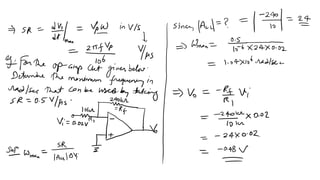 ⇒ SR = dVo/dt |max = Vp w in V/s
= 2πf Vp / 10^6 V/μs
eg. For the op-amp ckt given below
Determine the maximum frequency in
rad/sec that can be used by taking
SR = 0.5 V/μs.
240kΩ
= Rf
10kΩ
R1
Vi = 0.02V
Vo
Solⁿ ωmax = SR / |Acl| ΔVi
since, |Acl| = ? = |-240/10| = 24
⇒ ωmax = 0.5 / 10^-6 × 24 × 0.02
= 1.04×10^6 rad/sec
⇒ Vo = -Rf/R1 Vi
= -240k / 10k × 0.02
= -24×0.02
= -0.48 V